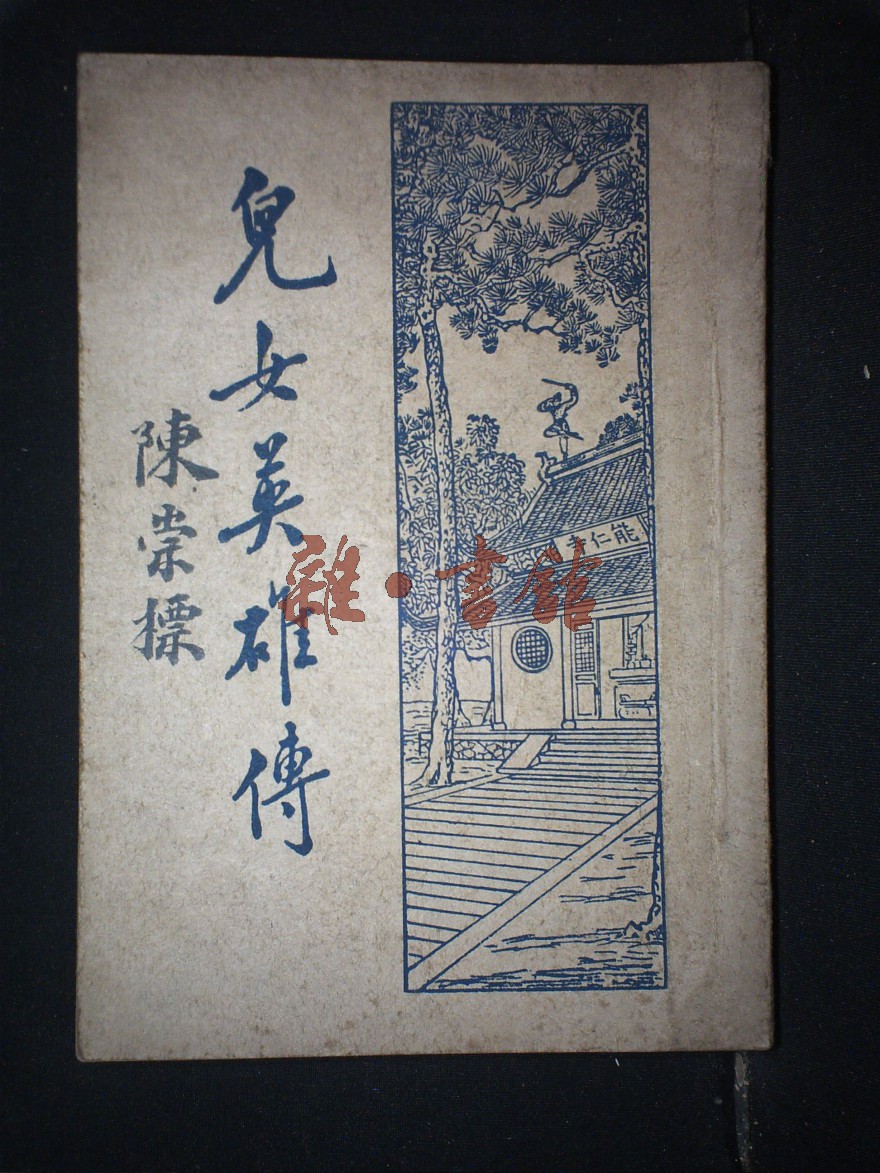 兒女英雄傳
陳崇標
能仁寺
雜·書館